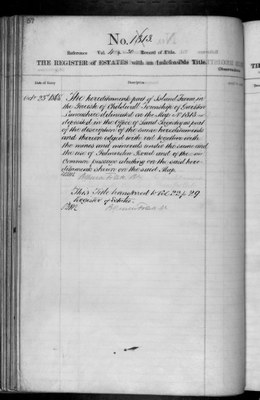 No. 1813
Reference Vol. Record of Title
THE REGISTER of ESTATES with an Indefeasible Title.
Date of Entry Description Observations
Octr 25th The hereditaments part of Island Farm in
the Parish of Childwall Township of
Lancashire delineated on the Map No 1813
deposited in the Office of Land Registry as part
of the description of the same hereditaments
and thereon edged with red together with
the mines and minerals under the same and
the use of Road and of the
Common passage abutting on the said here-
ditaments shewn on the said Map.
This Title transferred to Vol 22 p 29
Register of Estates.